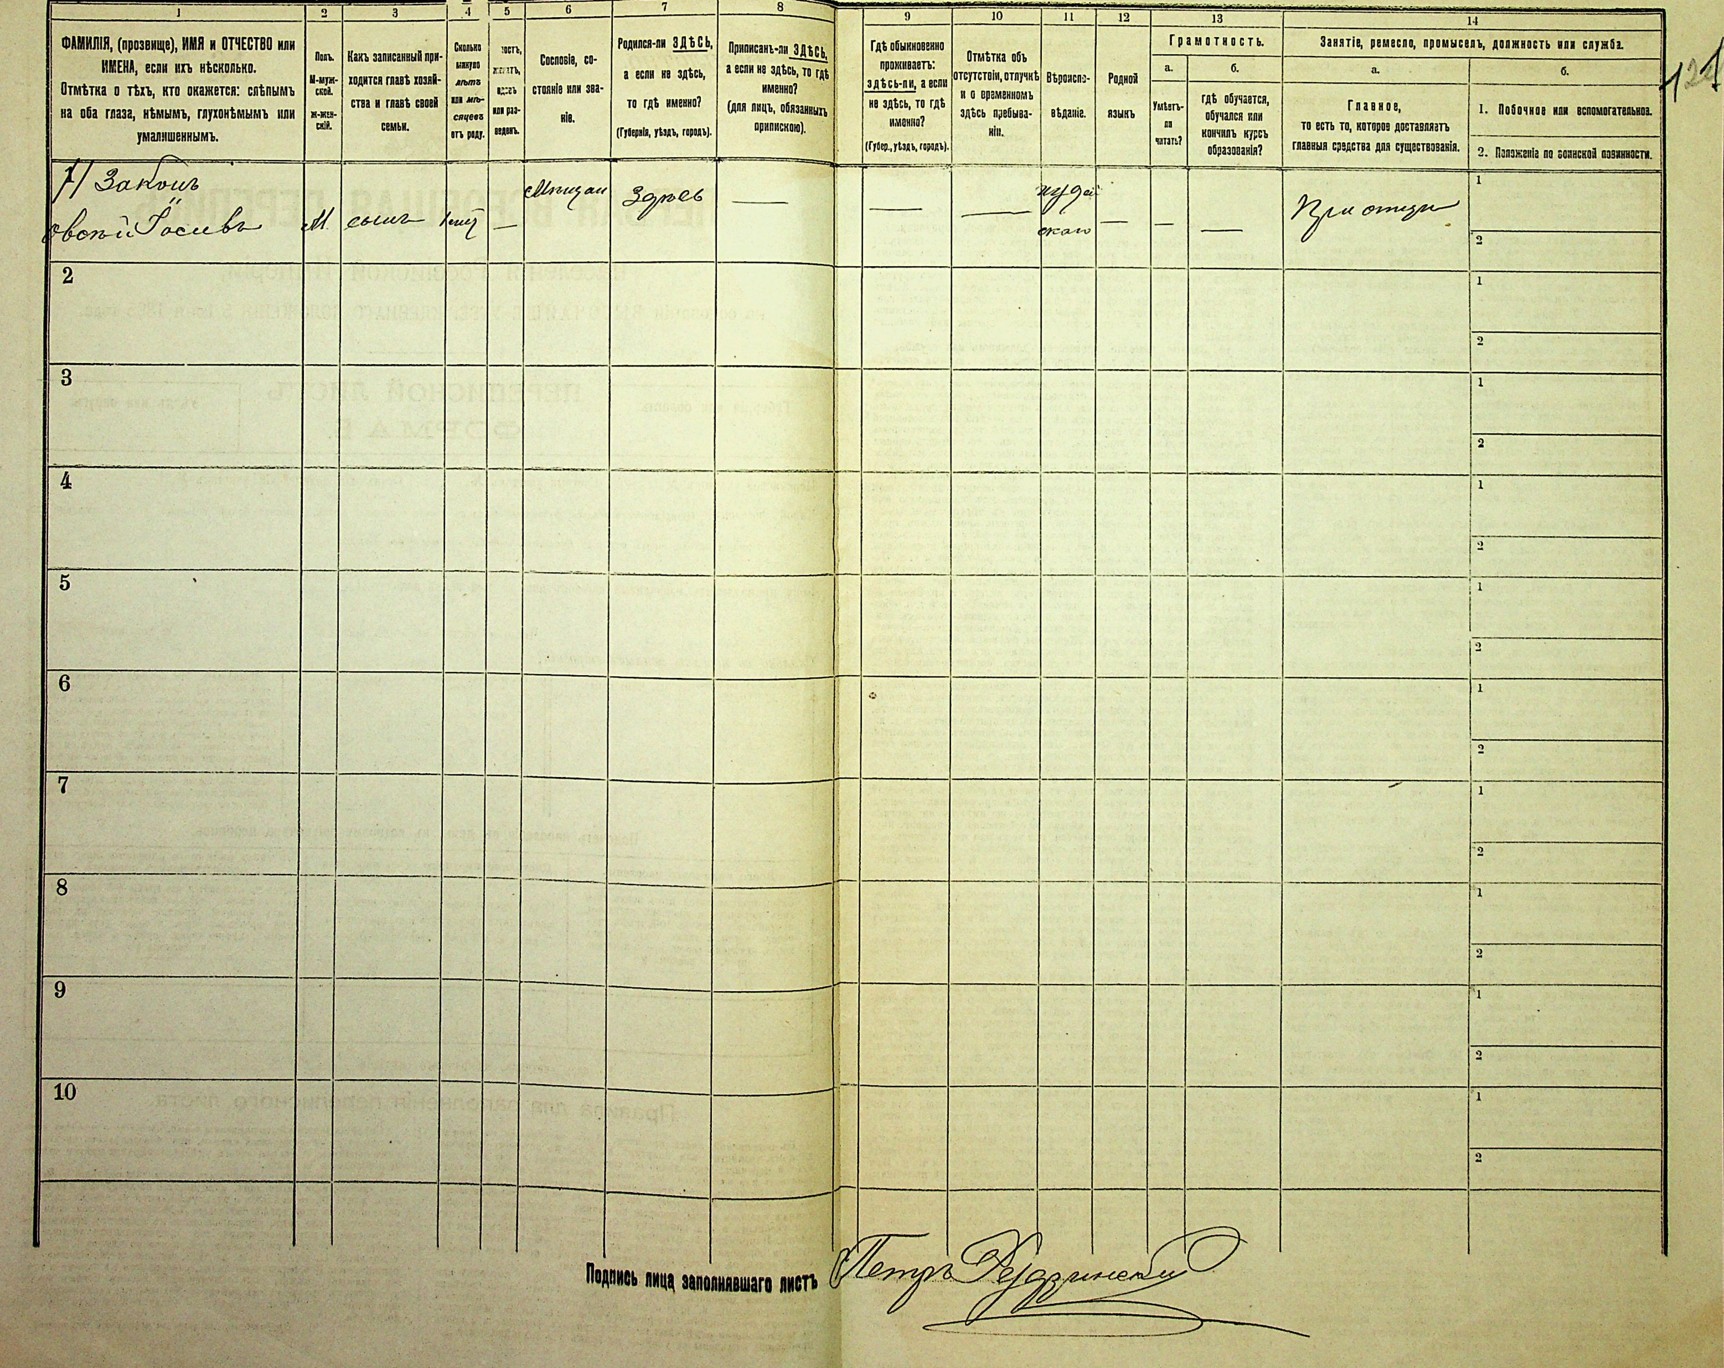 1 2 3 4 5 6 7 8 9 10 11 12 13 14
ФАМИЛІЯ, (прозвище), ИМЯ и ОТЧЕСТВО или
ИМЕНА, если ихъ нѣсколько.
Отмѣтка о тѣхъ, кто окажется: слѣпымъ
на оба глаза, нѣмымъ, глухонѣмымъ или
умалишеннымъ.
Полъ.
М-муж-
ской.
ж-жен-
скій.
Какъ записанный при-
ходится главѣ хозяй-
ства и главѣ своей
семьи.
Сколько
минуло
лѣтъ
или мѣ-
сяцевъ
отъ роду.
лостъ,
женатъ,
вдовъ
или раз-
веденъ.
Сословіе, со-
стояніе или зва-
ніе.
Родился-ли ЗДѢСЬ,
а если не здѣсь,
то гдѣ именно?
(Губернія, уѣздъ, городъ).
Приписанъ-ли ЗДѢСЬ,
а если не здѣсь, то гдѣ
именно?
(для лицъ, обязанныхъ
припискою).
Гдѣ обыкновенно
проживаетъ:
здѣсь-ли, а если
не здѣсь, то гдѣ
именно?
(Губер., уѣздъ, городъ).
Отмѣтка объ
отсутствіи, отлучкѣ
и о временномъ
здѣсь пребыва-
ніи.
Вѣроиспо-
вѣданіе.
Родной
языкъ
Грамотность.
а.
Умѣетъ-
ли
читать?
б.
гдѣ обучается,
обучался или
кончилъ курсъ
образованія?
Занятіе, ремесло, промыселъ, должность или служба.
а.
Главное,
то есть то, которое доставляетъ
главныя средства для существованія.
б.
1. Побочное или вспомогательное.
2. Положеніе по воинской повинности.
1) Закош
овскій М сынъ — Мѣщан Здѣсь — — — іудей
скаго — — — При отцѣ
1
2
2
1
2
3
1
2
4
1
2
5
1
2
6
1
2
7
1
2
8
1
2
9
1
2
10
1
2
Подпись лица заполнявшаго листъ Петръ